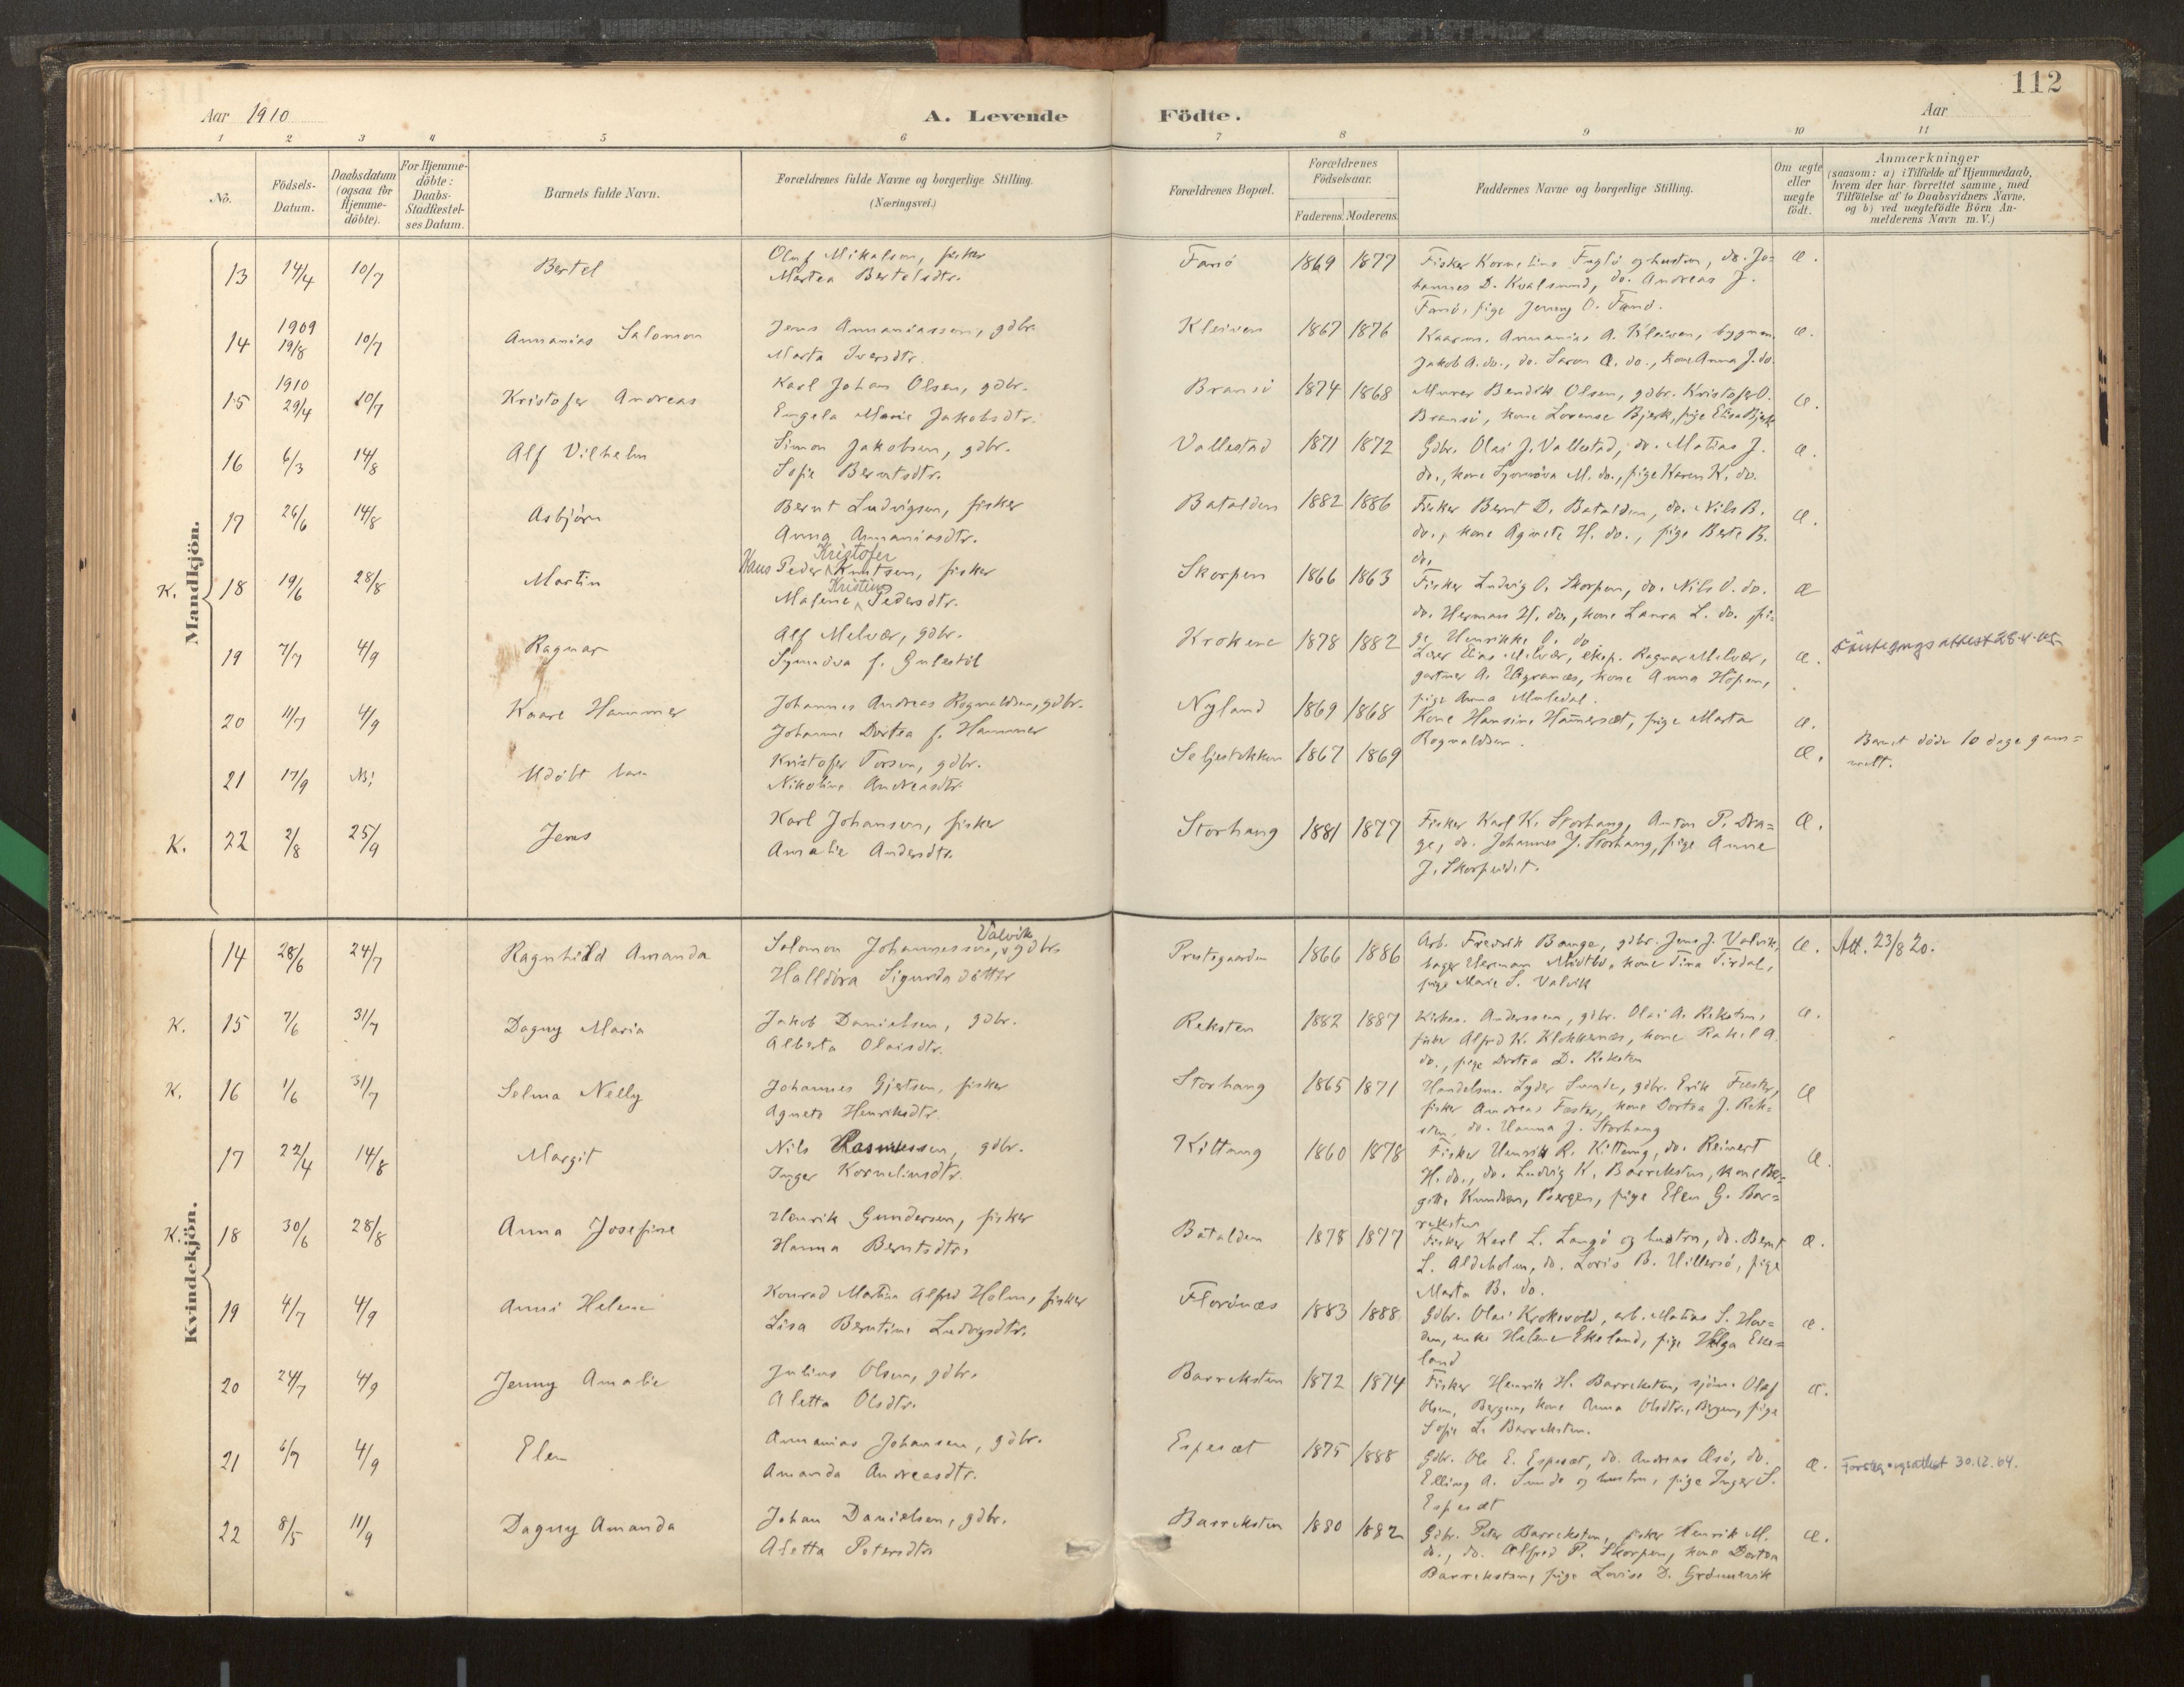 112
Aar 1910
A. Levende Födte.
Aar
1 2 3 4 5 6 7 8 9 10 11
No.
Födsels-Datum.
Daabsdatum (ogsaa for Hjemme-döbte).
For Hjemme-döbte: Daabs-Stadfæstel-ses Datum.
Barnets fulde Navn.
Forældrenes fulde Navne og borgerlige Stilling.
(Næringsvei.)
Forældrenes Bopæl.
Forældrenes Födselsaar.
Faderens. Moderens.
Faddernes Navne og borgerlige Stilling.
Om ægte eller uægte födt.
Anmærkninger
(saasom: a) i Tilfælde af Hjemmedaab,
hvem der har forrettet samme, med
Tilföielse af to Daabsvidners Navne,
og b) ved uægtefödte Börn An-
melderens Navn m. V.)
Mandkjön.
13 14/4 10/7 Bertel
Oluf Mikalsen, fisker
Martea Bertelsdtr.
Fanø 1869 1877
Fisker Kornelius Fuglø og hustru, do. Jo=
hannes D. Kvalsund, do. Andreas J.
Fanø, pige Jenny O. Fanø.
æ.
14 1909 19/8 10/7 Annanias Salomon
Jens Annaniassen, gdbr.
Marta Iversdtr.
Kleiven 1867 1876
Kaarm. Annanias A. Kleiven, bygmm.
Jakob A. do., do. Saron A. do., kone Anna J. do.
æ.
15 1910 29/4 10/7 Kristofer Andreas
Karl Johan Olsen, gdbr.
Engela Marie Jakobsdtr.
Bransø 1874 1868
Murer Bendik Olsen, gdbr. Kristofer O.
Bransø, kone Lovense Bjerk, pige Elisa Bjerk
æ.
16 6/3 14/8 Alf Vilhelm
Simon Jakobsen, gdbr.
Sofie Berntsdtr.
Vallestad 1871 1872
Gdbr. Olai J. Vallestad, do. Matias J.
do., kone Synnøva M. do., pige Karen K. do.
æ.
17 26/6 14/8 Asbjørn
Bernt Ludvigsen, fisker
Anna Annaniasdtr.
Batalden 1882 1886
Fisker Bernt D. Batalden, do. Nils B.
do., kone Agnete H. do., pige Berte B.
do.
æ.
K. 18 19/6 28/8 Martin
Kristofer
Hans Peder Knutsen, fisker
Kristine
Malene Pedersdtr.
Skorpen 1866 1863
Fisker Ludvig O. Skorpen, do. Nils O. do.
do. Herman H. do., kone Laura L. do. pi=
ge Henrikke O. do.
æ
19 7/7 4/9 Ragnar
Alf Melvær, gdbr.
Synnøva f. Gulestøl
Krokene 1878 1882
Lærer Elias Melvær, eksp. Ragnar Melvær,
gartner A. , kone Anna Hopen,
pige Anna Muledal.
æ.
20 11/7 4/9 Kaare Hammer
Johannes Andreas Rognaldsen, gdbr.
Johanne Dortea f. Hammer
Nyland 1869 1868
Kone Hansine Hamersæt, pige Marta
Rognaldsen.
æ.
21 17/9 Udøbt barn
Kristofer Torsen, gdbr.
Nikoline Andreasdtr.
Seljestokken 1867 1869
æ.
Barnet døde 10 dage gam=
melt.
K. 22 2/8 25/9 Jens
Karl Johansen, fisker
Amalie Andersdtr.
Storhaug 1881 1877
Fisker Karl K. Storhaug, Anton P. Dra=
ge, do. Johannes J. Storhaug, pige Anne
J. Skorpeidet.
æ.
Kvindekjön.
14 28/6 24/7 Ragnhild Amanda
Valvik
Salomon Johannessen, gdbr.
Halldóra Sigurdadóttir
Prestegaarden 1866 1886
Arb. Fredrik Bauge, gdbr. Jens J. Valvik,
bager Herman Midtbø, kone Tina Tirdal,
pige Marie S. Valvik
æ.
Att. 23/8 20.
K. 15 7/6 31/7 Dagny Maria
Jakob Danielsen, gdbr.
Alberta Olaisdtr.
Reksten 1882 1887
Kirkes. Anderssen, gdbr. Olai A. Reksten,
fisker Alfred K. Klokkernæs, kone Rakel A.
do., pige Dortea D. Reksten
æ.
K. 16 1/6 31/7 Selma Nelly
Johannes Gjertsen, fisker
Agnete Henriksdtr.
Storhaug 1865 1871
Handelsm. Lyder Sunde, gdbr. Erik Fæster,
fisker Andreas Fæster, kone Dortea J. Rek=
sten, do. Hanna J. Storhaug
æ
17 22/4 14/8 Margit
Nils Rasmussen, gdbr.
Inger Korneliusdtr.
Kittang 1860 1878
Fisker Henrik R. Kittang, do. Reinert
H. do., do. Ludvig K. Barreksten, kone Ber=
gitte Knudsen, Bergen, pige Elen G. Bar=
reksten
æ.
K. 18 30/6 28/8 Anna Josefine
Henrik Gundersen, fisker
Hanna Berntsdtr.
Batalden 1878 1877
Fisker Karl L. Langø og hustru, do. Bernt
L. Aldeholm, do. Lovis B. Hillersø, pige
Marta B. do.
æ.
19 4/7 4/9 Anni Helene
Konrad Martin Alfred Holm, fisker
Lisa Berntine Ludvigsdtr.
Florønæs 1883 1888
Gdbr. Olai Krokevold, arb. Matias S. Hov=
den, enke Helene Ekeland, pige Helga Eke=
land
æ.
20 24/7 4/9 Jenny Amalie
Julius Olsen, gdbr.
Aletta Olsdtr.
Barreksten 1872 1874
Fisker Henrik H. Barreksten, sjøm. Olaf
Olsen, Bergen, kone Anna Olsdtr., Bergen, pige
Sofie L. Barreksten.
æ.
21 6/7 4/9 Elen
Annanias Johansen, gdbr.
Amanda Andreasdtr.
Espesæt 1875 1888
Gdbr. Ole E. Espesæt, do. Andreas Æsø, do.
Elling A. Sunde og hustru, pige Inger S.
Espesæt
æ.
30.12.64.
22 8/5 11/9 Dagny Amanda
Johan Danielsen, gdbr.
Aletta Petersdtr.
Barreksten 1880 1882
Gdbr. Peter Barreksten, fisker Henrik M.
do., do. Alfred P. Skorpen, kone Dortea
Barreksten, pige Lovise D. Grønnevik
æ.